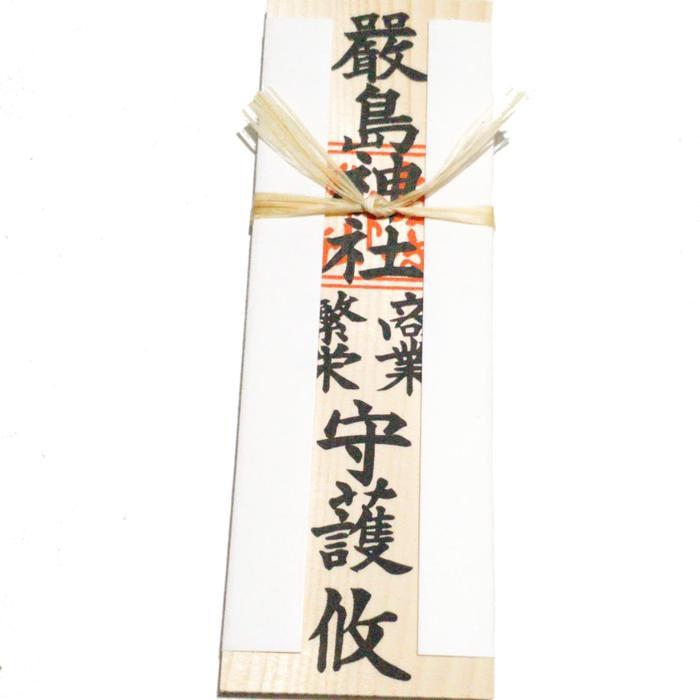 嚴島神社
商業
繁栄
守護攸